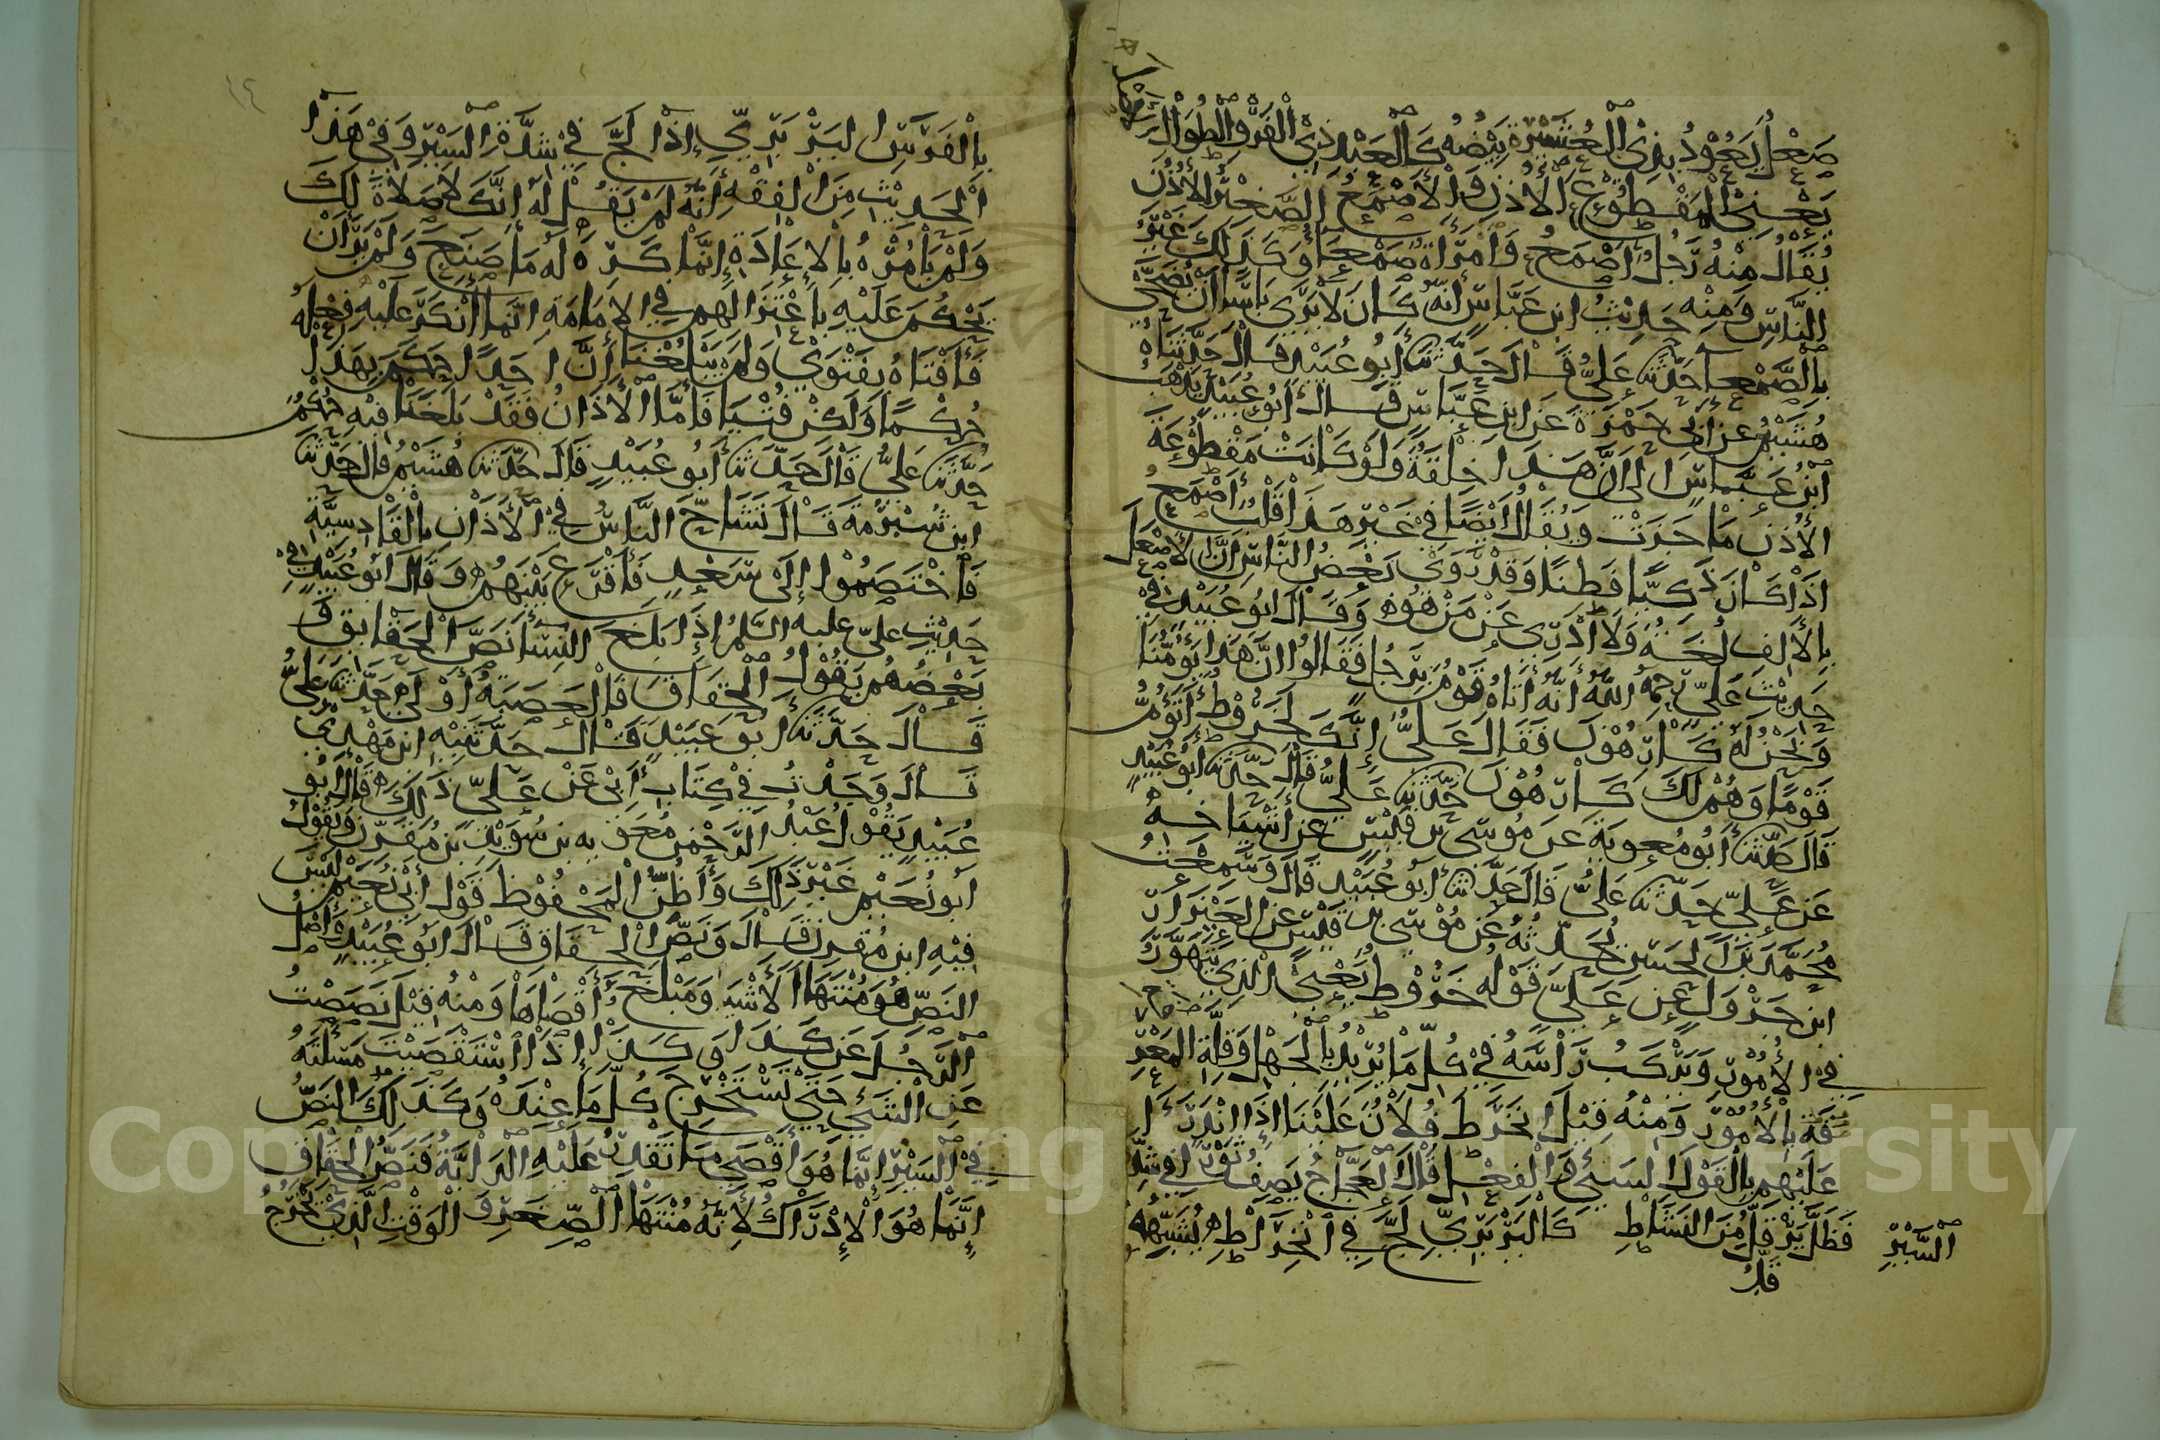 الأصلم
صَعْلٍ يَعُوْدُ بِذِي الْعُشَيْرَةِ بَيْضَهُ كَالْعَبْدِ ذِي الْفَرْوِ الطُوَالِ الْأَصْلَمِ
يَعْنِي الْمَقْطُوْعَ الْأُذُنِ وَالْأَصْمَعُ الصَّغِيْرُ الْأُذُنِ
يُقَالُ مِنْهُ رَجُلٌ أَصْمَعُ وَامْرَأَةٌ صَمْعَا وَكَذَلِكَ غَيْرُ
النَّاسِ وَمِنْهُ حَدِيْثُ ابن عَبَّاسٍ انَّهُ كَانَ لَا يَرَى بَاسًا أَنْ يُضَحَّى
بِالصَّمْعا حَدَّثَنَا عَلِيٌّ قَالَ حَدَّثَنَا أَبُو عُبَيْدٍ قَالَ حَدَّثَنَاهُ
هُشَيْمٌ عن ابي حَمْزَةَ عَن ابن عَبَّاسٍ قَالَ أَبُو عُبَيْدٍ يَذْهَبُ
ابْنُ عَبَّاسٍ الى انَّ هَذَا خِلْقَةٌ وَلَوْ كَانَتْ مَقْطُوْعَةَ
الْأُذُنِ مَا جَزَتْ وَيُقَالُ أَيْضًا فِي غَيْرِ هَذَا قَلْبٌ أَصْمَعُ
اذَا كَانَ ذَكِيًّا فَطِنًا وَقَدْ رَوَى بَعْضُ النَّاسِ انَّ الْاصْعَلَ
بِالْأَلِفِ لُغَةٌ وَلَا ادْرِى عَنْ مَنْ هُوَ وَقَالَ ابُو عُبَيْدٍ فِي
حَدِيْثِ عَلِيٍّ رَحِمَهُ اللهُ أَنَّهُ أَتَاهُ قَوْمٌ بِرَجُلٍ فَقَالُوا انَّ هَذَا يَؤُمُّنَا
وَنَحْنُ لَهُ كَارِهُوْنَ فَقَالَ عَلِيٌّ إِنَّكَ لَخَرُوْطٌ أَتَؤُمُّ
قَوْمًا وَهُمْ لَكَ كَارِهُوْنَ حَدَّثَنَا عَلِيٌّ قَالَ حَدَّثَنَا أَبُو عُبَيْدٍ
قَالَ حَدَّثَنَا أَبُو مُعوِيَةَ عَن مُوْسَى بن قَيْسٍ عن أَشْيَاخِهِ
عَن عَلِيٍّ حَدَّثَنَا عَلِيٌّ قَالَ حَدَّثَنَا أَبُو عُبَيْدٍ قَالَ وَسَمِعْتُ
مُحَمَّدَ بْنَ الحَسَنِ يُحَدِّثُهُ عَن مُوْسَى بن قَيْسٍ عن العَيْزَارِ
ابن جَرْوَل عن عَلِيٍّ قَوْلُهُ خَرُوْطٌ يَعْنِي الَّذِي يَتَهَوَّرُ
فِي الْأُمُوْرِ وَيَرْكَبُ رَأْسَهُ فِي كُلِّ مَا يُرِيْدُ بِالْجَهْلِ وَقِلَّةِ الْمَعْرِ
فَةِ بِالْأُمُوْرِ وَمِنْهُ قِيْلَ انْخَرَطَ فُلَانٌ عَلَيْنَا اذَا انْدَرَأَ
عَلَيْهِم بِالْقَوْلِ السَيِّئِ وَالْفِعْلِ قَالَ الْعَجَّاجُ يَصِفُ ثَوْرًا فِي شِدَّةِ
السَّيْرِ
فَظَلَّ يَرْقَدُّ مِنَ النَّشَاطِ كَالْبَرْبَرِيِّ لَجَّ فِي انْخِرَاطِ يُشَبِّهُهُ
بِالْفَرَسِ البَرْبَرِيِّ إِذَا لَجَّ فِي شِدَّةِ السَّيْرِ وَفِي هَذَا
الْحَدِيْثِ مِنَ الْفِقْهِ أَنَّهُ لَمْ يَقُلْ لَهُ انَّكَ لَا صَلَاةَ لَكَ
وَلَمْ يَأْمُرْهُ بِالْإِعَادَةِ إِنَّمَا كَرِهَ لَهُ مَا صَنَعَ وَلَمْ يَرَ أَنْ
يَحْكُمَ عَلَيْهِ بِاعْتِزَالِهِم فِي الإِمَامَةِ انَّمَا أَنْكَرَ عَلَيْهِ فِعْلَهُ
فَأَفْتَاهُ بِفَتْوَى وَلَم يَبْلُغْنَا أَنَّ احَدًا حَكَمَ بِهَذَا
حُكْمًا وَلَكِنْ فُتْيَا فَأَمَّا الْأَذَانُ فَقَدْ بَلَغَنَا فِيْهِ حُكْمٌ
حَدَّثَنَا عَلِيٌّ قَالَ حَدَّثَنَا أَبُو عُبَيْدٍ قَالَ حَدَّثَنَا هُشَيْمٌ قَالَ حَدَّثَنَا
ابن شُبْرُمَةَ قَالَ تَشَاحَّ النَّاسُ فِي الْأَذَانِ بِالْقَادِسِيَّةِ
فَاخْتَصَمُوْا إِلَى سَعْدٍ فَأَقْرَعَ بَيْنَهُمْ وَقَالَ ابُو عُبَيْدٍ فِي
حَدِيْثِ عَلِيٍّ عليه السَّلَم إِذَا بَلَغَ النِّسَا نَصَّ الْحَقَائِقِ وَ
بَعْضُهُم يَقُوْلُ الْحِقَاقَ فَالْعَصَبَةُ أَوْلَى حَدَّثَنَا عَلِيٌّ
قَالَ حَدَّثَنَا أَبُو عُبَيْدٍ قَالَ حَدَّثَنِيْهِ ابن مَهْدِيٍّ
قَالَ وَجَدْتُ فِي كِتَابِ أَبِي عَنْ عَلِيٍّ ذَلِكَ قَالَ أَبُو
عُبَيْدٍ يَقُوْلُ عَبْدُ الرَّحْمَنِ مُعوِيَه بن سُوَيْدِ بن مُقَرِّنٍ وَيَقُوْلُ
أَبُو نُعَيْمٍ غَيْرَ ذَلِكَ وَأَظُنُّ الْمَحْفُوْظَ قَوْلَ أَبِي نُعَيْمٍ لَيْسَ
فِيْهِ ابن مُقَرِنٍ قَالَ وَنَصَّ الْحِقَاقِ قَالَ ابُو عُبَيْدٍ وَأَصْلُ
النَصِّ هُوَ مُنْتَهَا الْأَشْيَا وَمَبْلَغُ أَقْصَاهَا وَمِنْهُ قِيْلَ نَصَصْتُ
الرَّجُلَ عَن كَذَا وَكَذَا إِذَا اسْتَقْصَيْتَ مَسْئَلَتَهُ
عَنِ الشَيْئِ حَتَّى تَسْتَخْرِجَ كُلَّ مَا عِنْدَهُ وَكَذَلِكَ النَصُّ
فِي السَيْرِ انَّمَا هُوَ أَقْصَى مَا تَقْدِرُ عَلَيْهِ الدَابَّةُ فَنَصُّ الْحِقَاقِ
إِنَّمَا هُوَ الْإِدْرَاكُ لِأَنَّهُ مُنْتَهَا الصِّغَرِ وَالْوَقْتِ الَّذِي يَخْرُجُ
Copy
ersity